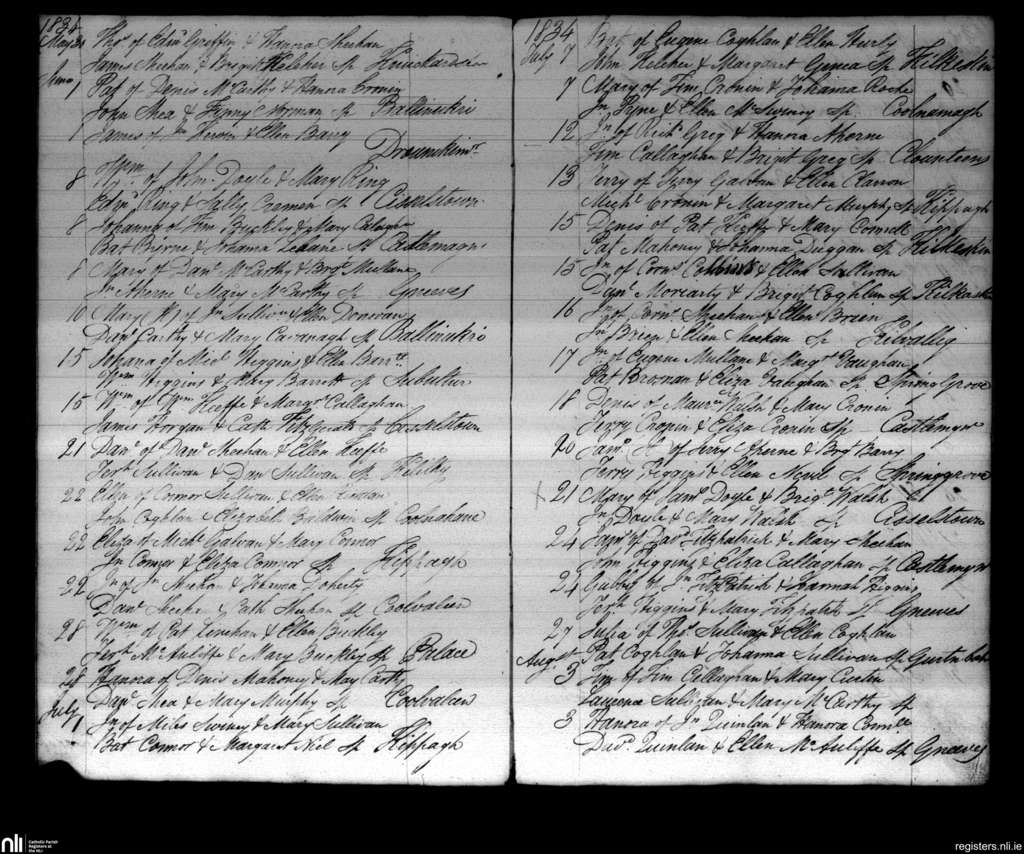 1834
May 30 Thos. of Edmd. Griffin & Hanora Sheehan
James Sheehan & Brigit Keleher Sp
June 1 Pat of Denis McCarthy & Hanora Cronin
John Shea & Finny Noonan Sp Ballinskrio
1 James of Jn & Ellen Barry
Drounskinr.
8 Wm. of John Doyle & Mary Ring
Edmd. Ring & Sally Sp Cisselstown
8 Johanna of Tim Buckley & Mary
Bat & Johana Sp Castlemagnr
8 Mary of Danl. McCarthy & Brgt. Mullane
Jn. Aherne & Mary McCarthy Sp Greeves
10 Mary of Jn Sullivan & Ellen Donovan
Danl. Carthy & Mary Cavanagh Sp Ballinskrio
15 Johana of Michl. Higgins & Ellen
Wm Higgins & Mary Barrett Sp Subulter
15 Wm. of Wm Keeffe & Margt. Callaghan
James & Cath Fitzgerald Sp Cisselstown
21 Danl. of Danl. Sheehan & Ellen Keeffe
Jerh. Sullivan & Danl Sullivan Sp
22 Ellen of Connor Sullivan & Ellen
John Coghlan & Elizabeth Baldwin Sp Coolnahane
22 Eliza of Michl. Galvan & Mary Connor
Jn Connor & Eliza Connor Sp Kippagh
22 Jn of Jn Sheehan & Johanna Doherty
Danl. & Cath Sp Coolvaleen
28 Wm of Pat Linehan & Ellen Buckley
Jerh. McAuliffe & Mary Buckley Sp Palace
28 Hanora of Denis Mahoney & Mary Carthy
Danl. Shea & Mary Murphy Sp Coolvaleen
July 1 Jn of Miles Swiney & Mary Sullivan
Bat Connor & Margaret Niel Sp Kippagh
1834
July 7 of Eugene Coghlan & Ellen Hurly
John Keleher & Margaret Sp Kilkeskin
7 Mary of Tim Cronin & Johanna Roche
Jn & Ellen McSwiney Sp Coolnamagh
12 Jn of Richd. Greg & Hanora Aherne
Tim Callaghan & Brigit Greg Sp Clounteens
13 Jerry of Jerry Galvan & Ellen
Michl. Cronin & Margaret Murphy Sp Kippagh
15 Denis of Pat & Mary Connell
Pat Mahoney & Johanna Duggan Sp Kilkeskin
15 Jn of Corns. Collins & Ellen Sullivan
Danl. Moriarty & Brigit Coghlan Sp
16 Jn of Corns. Sheehan & Ellen Breen
Jn Breen & Ellen Sheehan Sp Kilvallig
17 Jn of Eugene Mullane & Margt. Vaughan
Pat Brosnan & Eliza Vaughan Sp Spring Grove
18 Denis of Maurce. Walsh & Mary Cronin
Jerry Cronin & Eliza Cronin Sp Castlemgnr
20 of Jerry Aherne & Bgt Barry
Jerry Higgins & Ellen Sp Springgrove
x 21 Mary of Jams. Doyle & Brigt. Walsh
Jn Doyle & Mary Walsh Sp Cisselstown
24 of Jas. Fitzpatrick & Mary Sheehan
John Higgins & Eliza Callaghan Sp Castlemgnr
24 of Jn FitzPatrick & Hannah Higgins
Jerh. Higgins & Mary Sp Greeves
27 Julia of Thos. Sullivan & Ellen Coghlan
Pat Coghlan & Johanna Sullivan Sp
August 3 Jim of Jim Callaghan & Mary Curtin
Laurence Sullivan & Mary McCarthy Sp
3 Hanora of Jn Quinlan & Hanora Connell
David. Quinlan & Ellen McAuliffe Sp Greeves
nli
Catholic Parish
Registers at
the NLI
registers.nli.ie